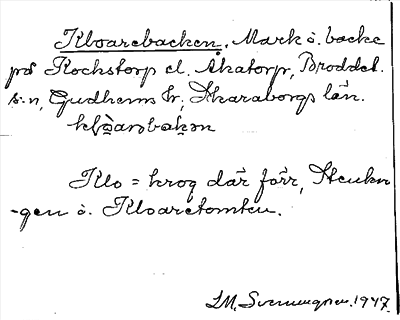 Kloarebacken, Mark o. backe
på Rockstorp el. Åkatorp, Broddet.
s:n, Gudhems hr, Skaraborgs län.
Klo = krog där förr, Stenkn
-gen o. Kloaretomten.
S.M. Svenungsson. 1947.